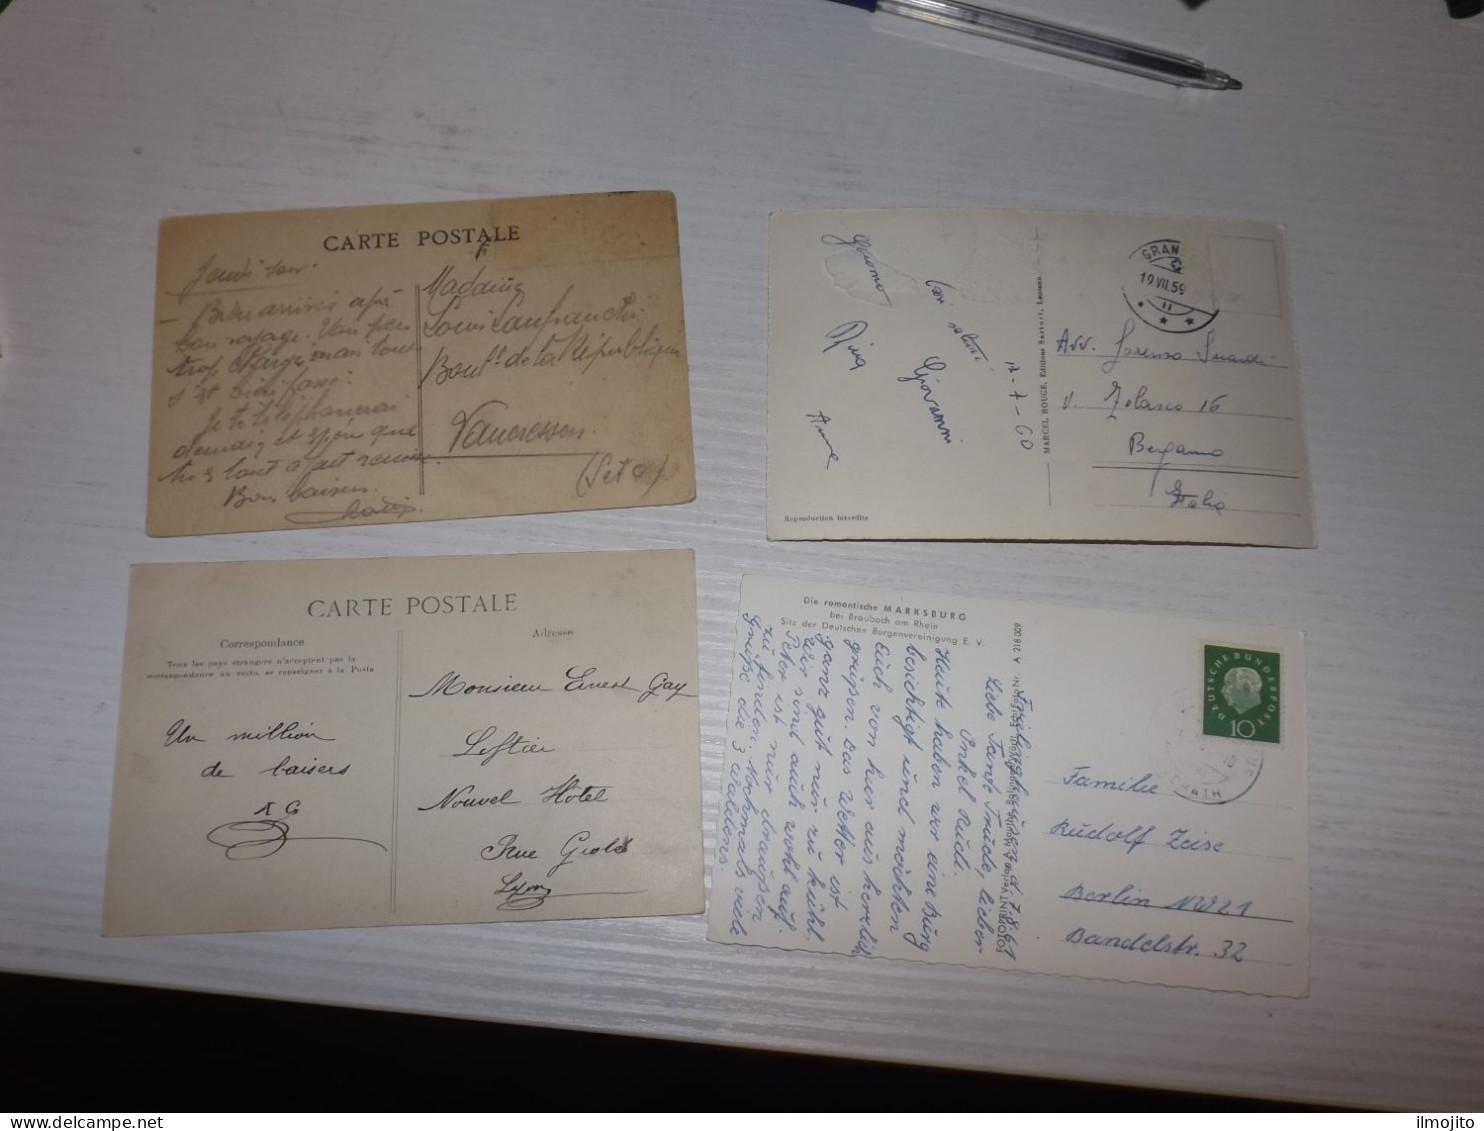 CARTE POSTALE
Jeudi soir.
Bien arrivés après
bon voyage. Un peu
trop chargé mais tout
s'est bien passé.
Je te téléphonerai
demain et espère que
Bons baisers.
Madame
Louis Lanfranchi
Boul. de la République
Vaucresson.
(S et O)
MARCEL ROUGE, Editions
Reproduction interdite
GRAN
19 VII.59
Giacomo
Rina
Anna
Giovanni
17-7-60
Avv. Lorenzo Suardi
V. 16
Bergamo
Italia
CARTE POSTALE
Correspondance
Tous les pays étrangers n'acceptent pas la
correspondance au recto, se renseigner à la Poste
Adresse
Un million
de baisers
Monsieur Ernest Gay
Nouvel Hôtel
Rue
Lyon
Die romantische MARKSBURG
bei Braubach am Rhein
Sitz der Deutschen Burgenvereinigung E. V.
Nr. A 218 009
d. 7.8.61
Liebe Tante Trude, lieber
Onkel Rudi.
Heute haben wir eine Burg
besichtigt und möchten
Euch von hier aus herzlich
grüßen. Das Wetter ist
ganz gut nur zu kühl.
Wir sind auch wohl auf.
Peter ist nur draußen
zu finden. Nochmals viele
Grüße die 3
DEUTSCHE BUNDESPOST
10
Familie
Rudolf Zeise
Berlin NW21
Bandelstr. 32
delcampe.net
ilmojito